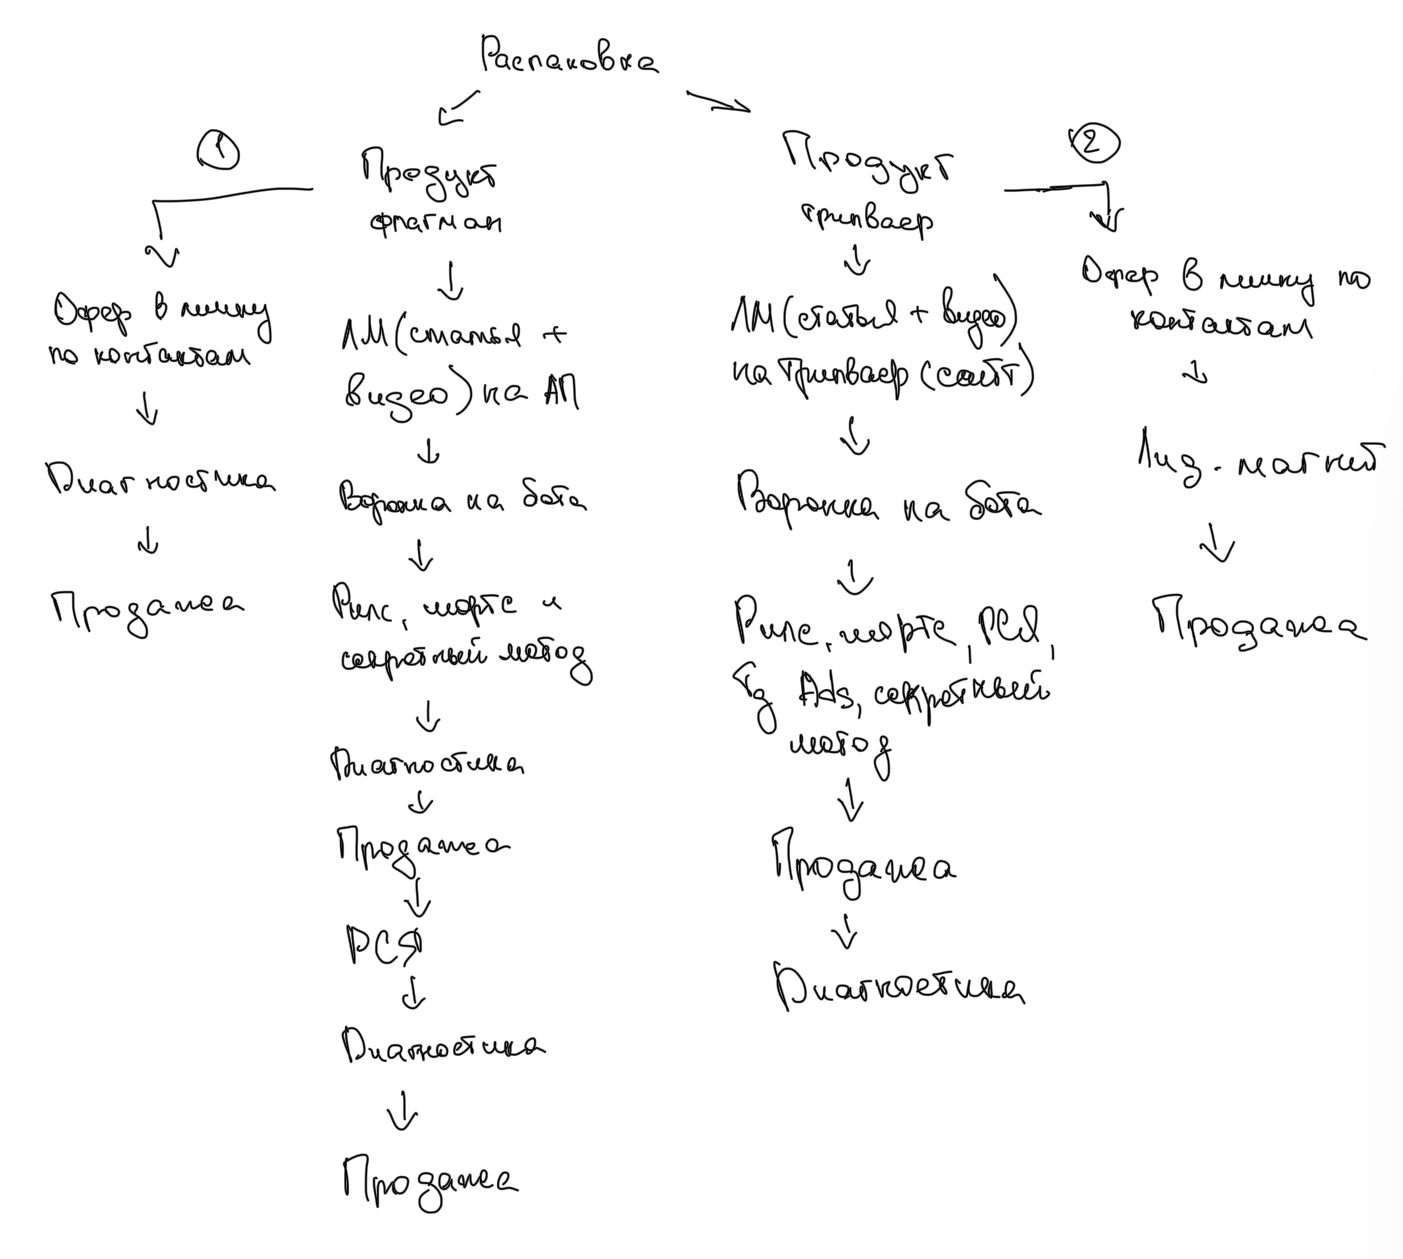 Распаковка
1
Продукт
флагман
Офер в личку
по контактам
Диагностика
Продажа
ЛМ (статья +
видео) на АП
Воронка на бота
Рилс, шортс и
секретный метод
Диагностика
Продажа
РСЯ
Диагностика
Продажа
Продукт
трипваер
ЛМ (статья + видео)
на трипваер (сайт)
Воронка на бота
Рилс, шортс, РСЯ,
Tg Ads, секретный
метод
Продажа
Диагностика
2
Офер в личку по
контактам
Лид-магнит
Продажа